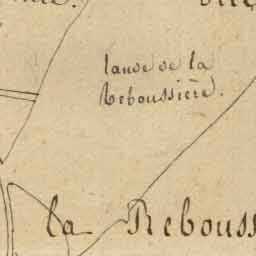 lande de la
Reboussière.
la Rebouss